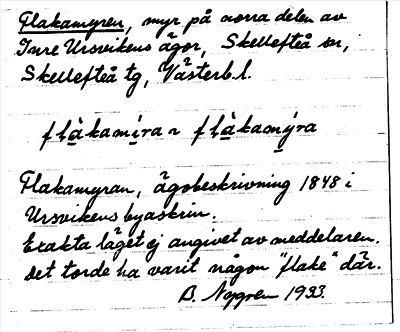 Flakamyren, myr på norra delen av
Inre Ursvikens ägor, Skellefteå sn,
Skellefteå tg, Västerb.l.
flàkamíra ~ flàkamýra
Flakamyran, ägobeskrivning 1848 i
Ursvikens byaskrin.
Exakta läget ej angivet av meddelaren.
Det torde ha varit någon "flake" där.
B. Nygren 1933.